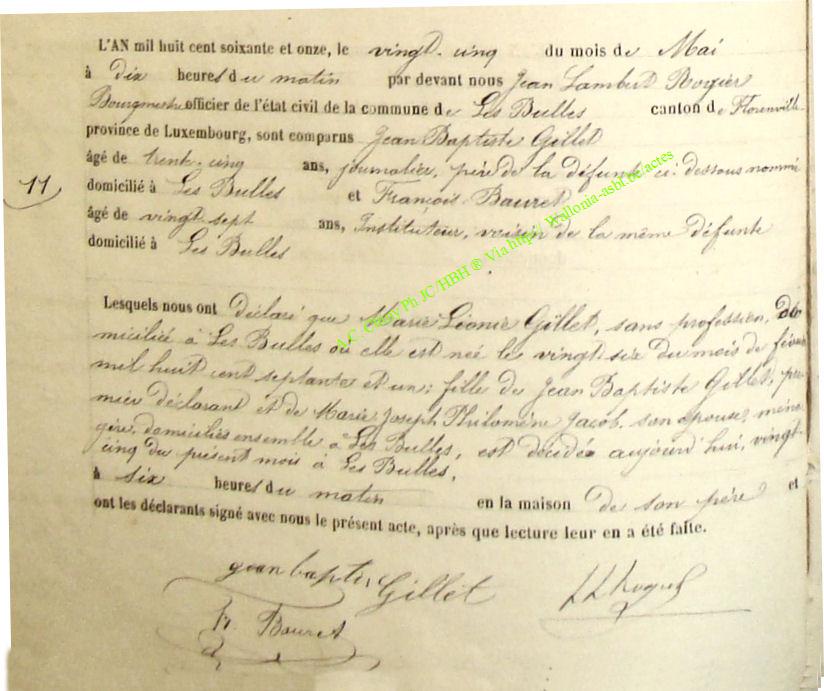 L'AN mil huit cent soixante et onze, le vingt-cinq du mois de Mai
à dix heures du matin par devant nous Jean Lambert Rogier
Bourgmestre officier de l'état civil de la commune de Les Bulles canton de Florenville
province de Luxembourg, sont comparus Jean Baptiste Gillet
âgé de trente-cinq ans, journalier, père de la défunte ci-dessous nommé
11 domicilié à Les Bulles et François Bauret
âgé de vingt-sept ans, Instituteur, voisin de la même défunte
domicilié à Les Bulles
A.C. Chiny Ph JC/HBH ® Via http// Wallonia-asbl.be/actes
Lesquels nous ont déclaré que Marie Léonie Gillet, sans profession, do
miciliée à Les Bulles où elle est née le vingt-six du mois de février
mil huit cent septante et un; fille de Jean Baptiste Gillet, pre-
mier déclarant et de Marie Joseph Philomène Jacob, son épouse, ména
gère, domiciliés ensemble à Les Bulles, est décédée aujourd'hui, vingt-
cinq du présent mois à Les Bulles,
à six heures du matin en la maison de son père et
ont les déclarants signé avec nous le présent acte, après que lecture leur en a été faite.
jean baptis Gillet
Fr. Bauret